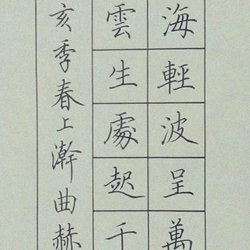 海輕波呈萬
雲生處起千
亥季春上澣曲赫